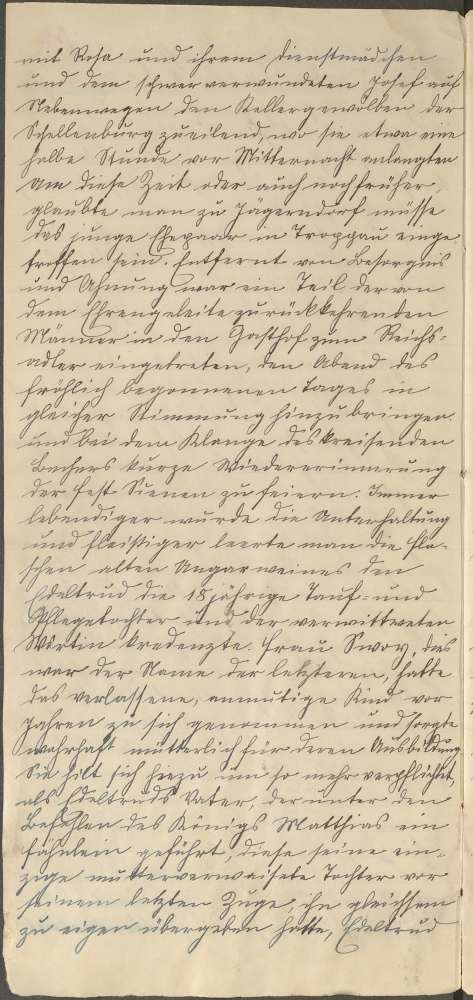 mit Rosa und ihrem Dienstmädchen
und dem schwerverwundeten Josef auf
Nebenwegen den Kellergewölben der
Schellenburg zueilend, wo sie etwa eine
halbe Stunde vor Mitternacht anlangten
Um diese Zeit oder auch noch früher,
glaubte man zu Jägerndorf müsse
das junge Ehepaar in Troppau einge
troffen sein. Entfernt von Besorgnis
und Ahnung war ein Teil der von
dem Ehrengeleite zurückkehrenden
Männer in den Gasthof zum Reichs-
adler eingetreten, den Abend des
fröhlich begonnenen Tages in
gleicher Stimmung hinzubringen
und bei dem Klange des kreisenden
Bechers kurze Wiedererinnerung
der fest Szenen zu feiern. Immer
lebendiger wurde die Unterhaltung
und fleißiger leerte man die Fla-
schen alten Ungarweines den
Edeltrud die 18 jährige Tauf- und
Pflegetochter und der verwittweten
Wirtin kredenzte. Frau Swoy, dies
war der Name der letzteren, hatte
das verlassene, anmutige Kind vor
Jahren zu sich genommen und sorgte
wahrhaft mütterlich für deren Ausbildung
Sie hilt sich hezu um so mehr verpflichtet,
als Edeltruds Vater, der unter den
Befehlen des Königs Matthias ein
Fähnlein geführt, diese seine ein-
zige mutterverwaisete Tochter vor
seinem letzten Zuge, ihr gleichsam
zu eigen übergeben hatte, Edeltrud